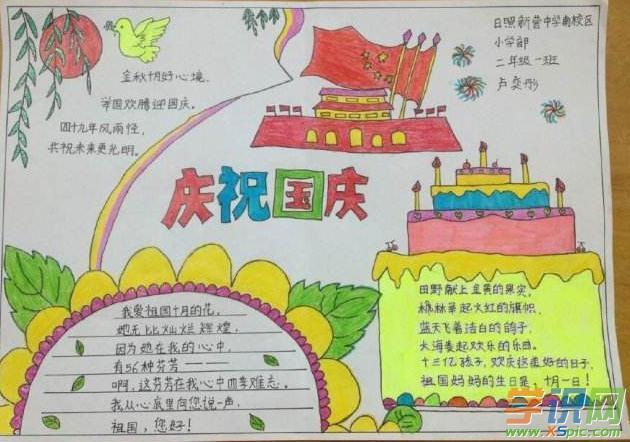 日照新营中学南校区
小学部
二年级一班
卢奕彤
金秋十月好心境,
举国欢腾迎国庆。
四十九年风雨怪,
共祝未来更光明。
庆祝国庆
我爱祖国十月的花,
她无比灿烂辉煌,
因为她在我的心中,
有56种芬芳——
啊,这芬芳在我心中四季难忘。
我从心底里向您说一声,
祖国,您好!
田野献上金黄的果实,
枫林举起火红的旗帜,
蓝天飞着洁白的鸽子,
大海奏起欢乐的乐曲。
十三亿孩子,欢庆这美好的日子,
祖国妈妈的生日是,十月一日!
学识网
www.xspic.com